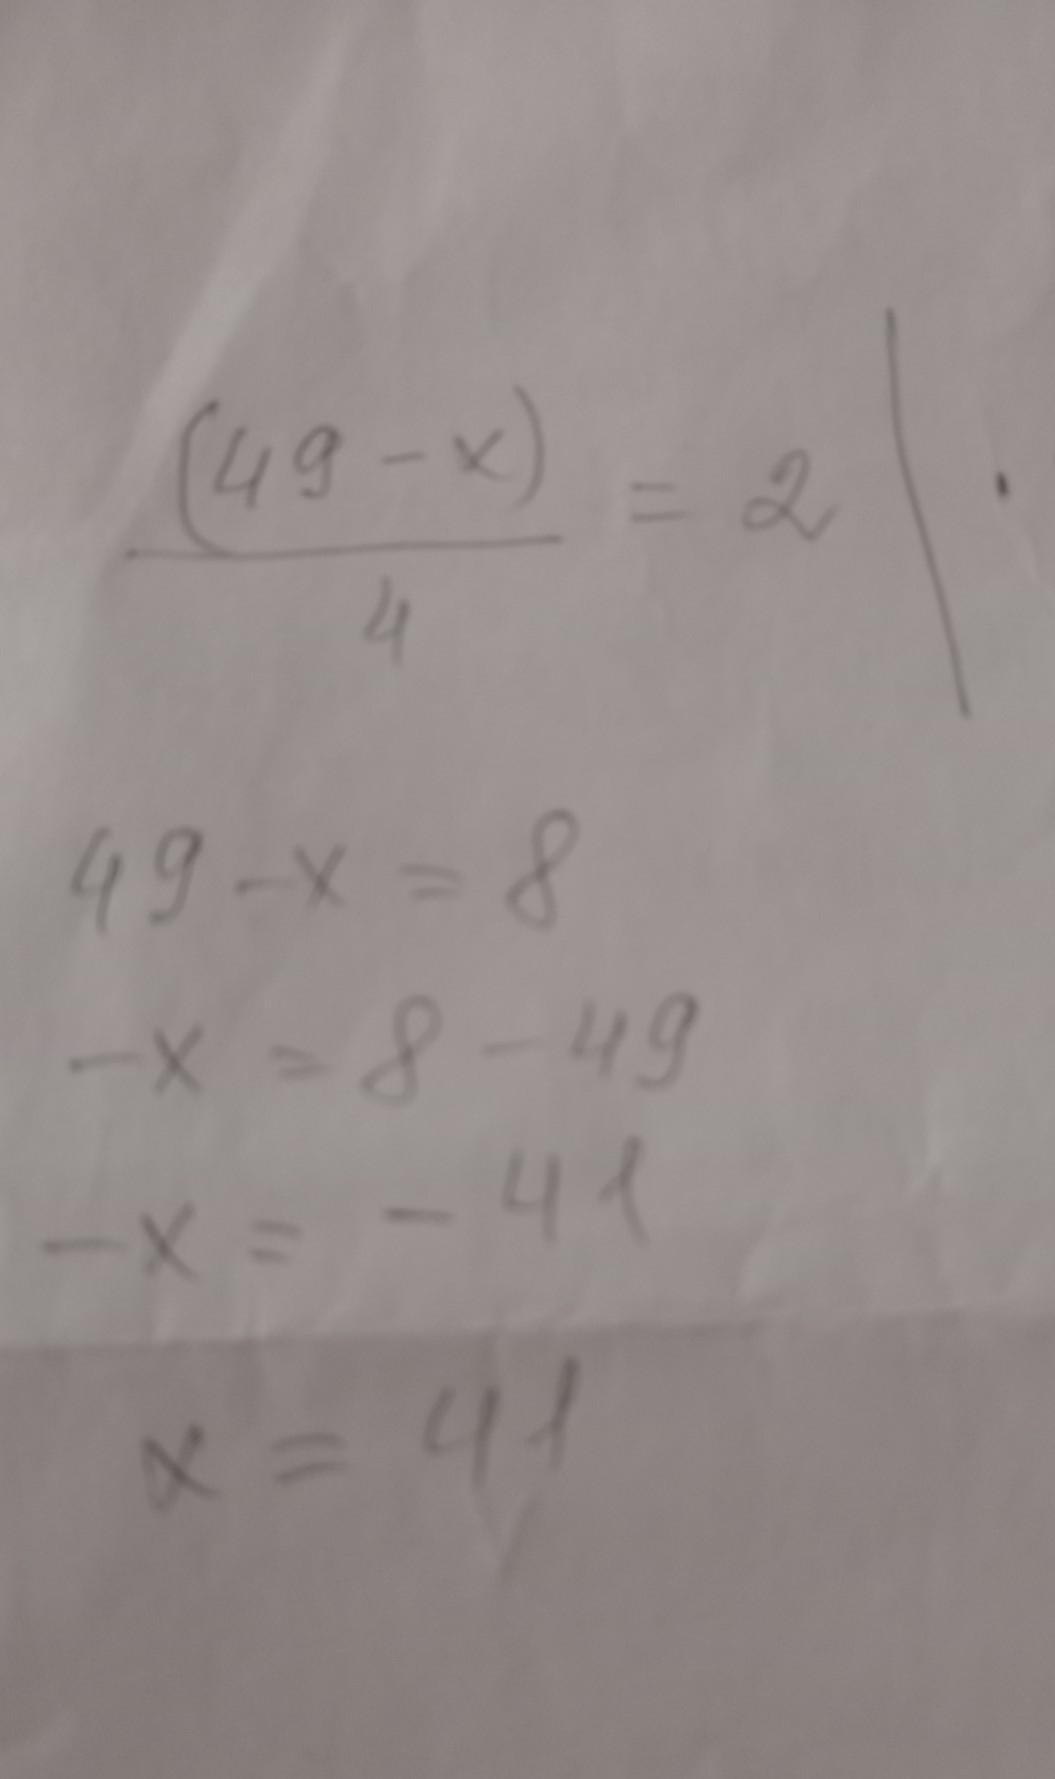 (49 - x)
/ 4 = 2 | ·
49 - x = 8
-x = 8 - 49
-x = - 41
x = 41